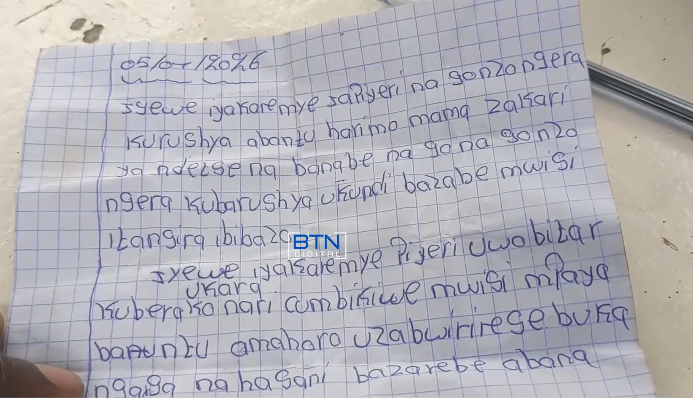 05/0-/2026
Jyewe iyakaremye Janyeri na gonzongera
kurushya abantu harimo mama zakari
ya ndetse na bangbe na gana gonzo
ngera kubarushya ukundi bazabe mwisi
itangira ibibazo
BTN
DIGITAL
Jyewe iyakaremye Piyeri uwobitar
ukara
kubera ko nari cumbikiwe mwisi mbaya
bantu amahoro uzabwirirege buka
ngaga na hasani bazarebe abana